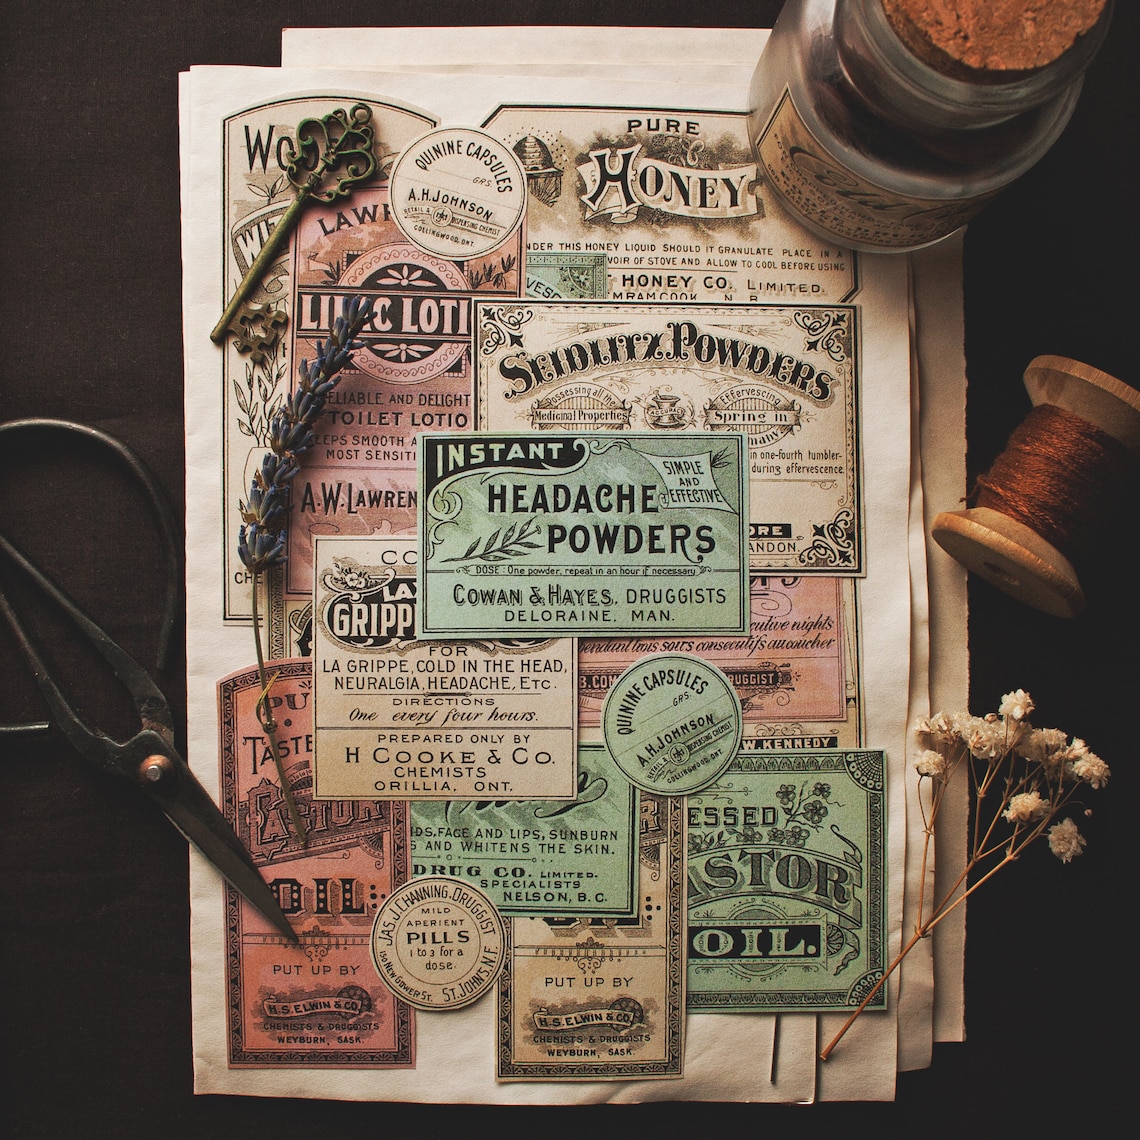 QUININE CAPSULES
GRS.
A.H. JOHNSON
RETAIL & DISPENSING CHEMIST
COLLINGWOOD, ONT.
PURE
HONEY
THIS HONEY LIQUID SHOULD IT GRANULATE PLACE IN A
OF STOVE AND ALLOW TO COOL BEFORE USING
HONEY CO. LIMITED.
N. B.
LILAC LOTI
AND DELIGHT
TOILET LOTIO
SMOOTH A
MOST SENSITI
A.W. LAWREN
SEIDLITZ POWDERS
Possessing all the
Medicinal Properties
Effervescing
Spring in
in one-fourth tumbler-
during effervescence.
INSTANT
HEADACHE
POWDERS
SIMPLE
AND
EFFECTIVE
DOSE: One powder, repeat in an hour if necessary
COWAN & HAYES, DRUGGISTS
DELORAINE, MAN.
LA
GRIPP
FOR
LA GRIPPE, COLD IN THE HEAD,
NEURALGIA, HEADACHE, ETC.
DIRECTIONS
One every four hours.
PREPARED ONLY BY
H COOKE & CO.
CHEMISTS
ORILLIA, ONT.
nights
trois soirs consécutifs au coucher
W. KENNEDY
QUININE CAPSULES
GRS.
A.H. JOHNSON
RETAIL & DISPENSING CHEMIST
COLLINGWOOD, ONT.
FACE AND LIPS, SUNBURN
AND WHITENS THE SKIN.
DRUG CO. LIMITED.
SPECIALISTS
NELSON, B.C.
ESSED
ASTOR
OIL.
TASTE
CASTOR
OIL:
PUT UP BY
H. S. ELWIN & CO.
CHEMISTS & DRUGGISTS
WEYBURN, SASK.
JAS. J. CHANNING, DRUGGIST
MILD
APERIENT
PILLS
1 to 3 for a
dose.
150 NEW GOWER ST. ST. JOHNS, N.F.
PUT UP BY
H. S. ELWIN & CO.
CHEMISTS & DRUGGISTS
WEYBURN, SASK.